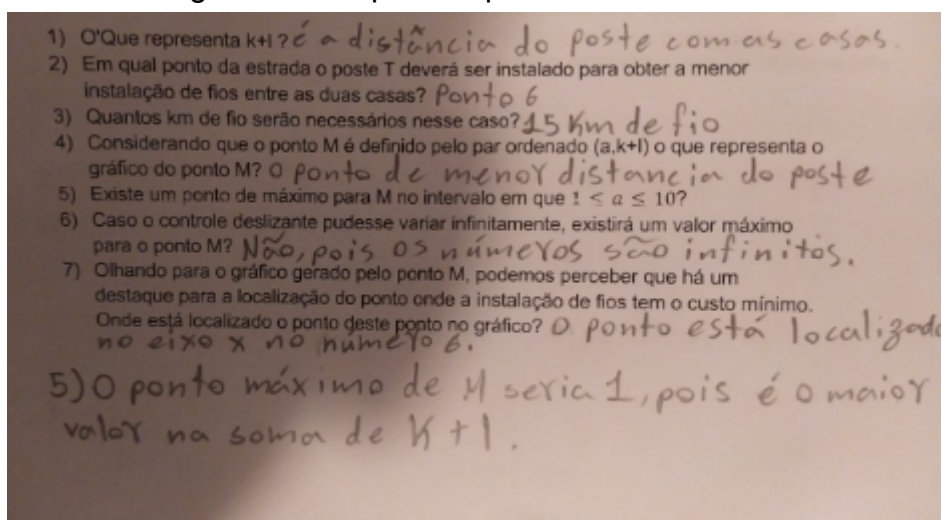 1) O'Que representa k+l ? é a distância do poste com as casas.
2) Em qual ponto da estrada o poste T deverá ser instalado para obter a menor
instalação de fios entre as duas casas? Ponto 6
3) Quantos km de fio serão necessários nesse caso? 15 Km de fio
4) Considerando que o ponto M é definido pelo par ordenado (a,k+l) o que representa o
gráfico do ponto M? O ponto de menor distancia do poste
5) Existe um ponto de máximo para M no intervalo em que 1 ≤ a ≤ 10?
6) Caso o controle deslizante pudesse variar infinitamente, existirá um valor máximo
para o ponto M? Não, pois os números são infinitos.
7) Olhando para o gráfico gerado pelo ponto M, podemos perceber que há um
destaque para a localização do ponto onde a instalação de fios tem o custo mínimo.
Onde está localizado o ponto deste ponto no gráfico? O ponto está localizado
no eixo x no número 6.
5) O ponto máximo de M seria 1, pois é o maior
valor na soma de K + l.